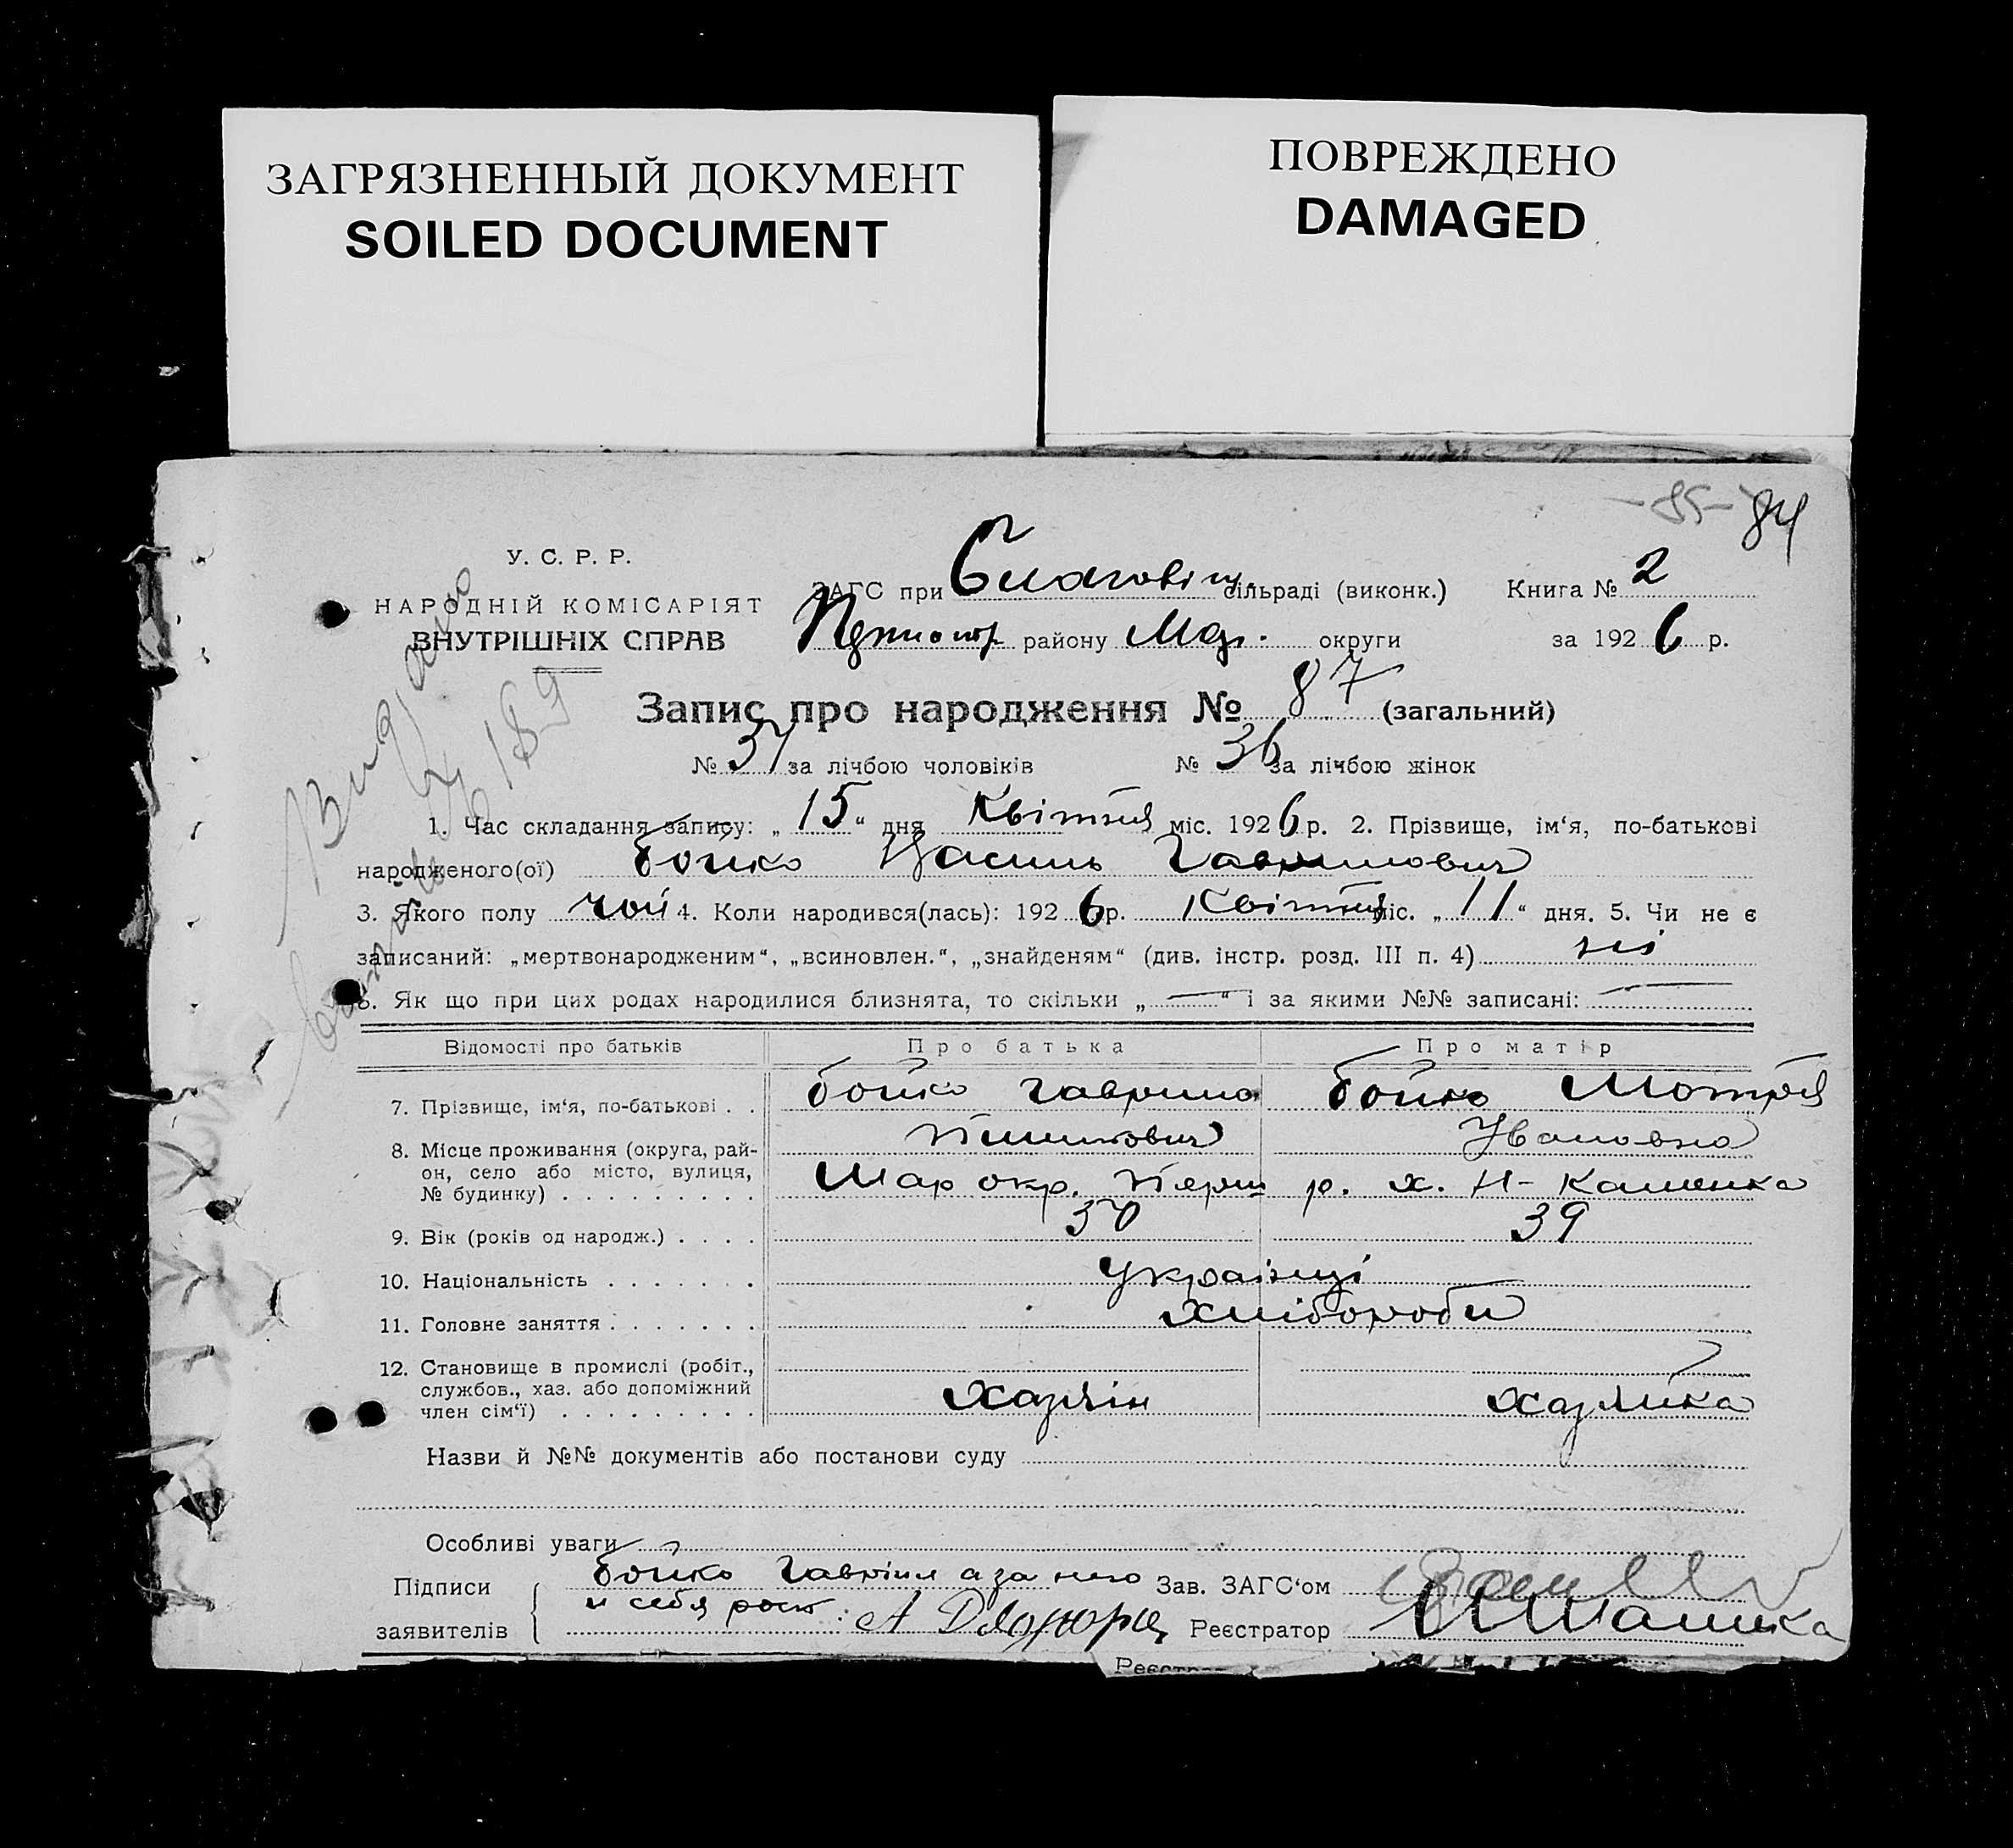 ЗАГРЯЗНЕННЫЙ ДОКУМЕНТ
SOILED DOCUMENT
ПОВРЕЖДЕНО
DAMAGED
-85- 84
У. С. Р. Р.
НАРОДНІЙ КОМІСАРІЯТ
ВНУТРІШНІХ СПРАВ
ЗАГС при сільраді (виконк.) Книга № 2
району округи за 1926 р.
Запис про народження № 87 (загальний)
№ за лічбою чоловіків № 36 за лічбою жінок
1. Час складання запису: „ 15 “ дня Квітня міс. 1926 р. 2. Прізвище, ім‘я, по-батькові
народженого(ої) Бойко Василь Гаврилович
3. Якого полу чол 4. Коли народився(лась): 1926 р. Квітня міс. „ 11 “ дня. 5. Чи не є
записаний: „мертвонародженим“, „всиновлен.“, „знайденям“ (див. інстр. розд. III п. 4) ні
6. Як що при цих родах народилися близнята, то скільки „ — “ і за якими №№ записані: —
Відомості про батьків Про батька Про матір
7. Прізвище, ім‘я, по-батькові . . Бойко Гаврило Бойко Мотря
Пилипович Ивановна
8. Місце проживання (округа, рай-
он, село або місто, вулиця,
№ будинку) . . . . . . . . . Мар окр. р. х. Н-Каменка
9. Вік (років од народж.) . . . . 39
10. Національність . . . . . . . Українці
11. Головне заняття . . . . . . . хлібороби
12. Становище в промислі (робіт.,
службов., хаз. або допоміжний
член сім‘ї) . . . . . . . . . хазяїн хазяйка
Назви й №№ документів або постанови суду
Особливі уваги
Підписи Бойко Гавриїл а за него Зав. ЗАГС‘ом
заявителів и себя Реєстратор